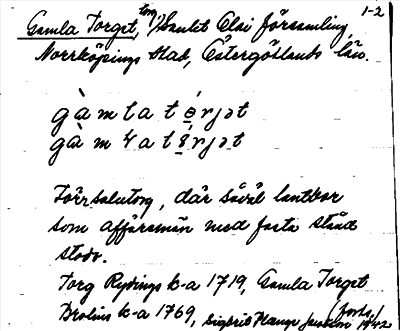 1-2
Gamla Torget, torg i Sankt Olai församling,
Norrköpings stad, Östergötlands län.
gàmlatórjət
gàmatórjət
Försalutorg, där såväl lantbor
som affärsmän med fasta stånd
stodo.
Torg Rydings k-a 1719, Gamla Torget
Brolins k-a 1769,
(forts.)
Sigfrid Jansson 1942